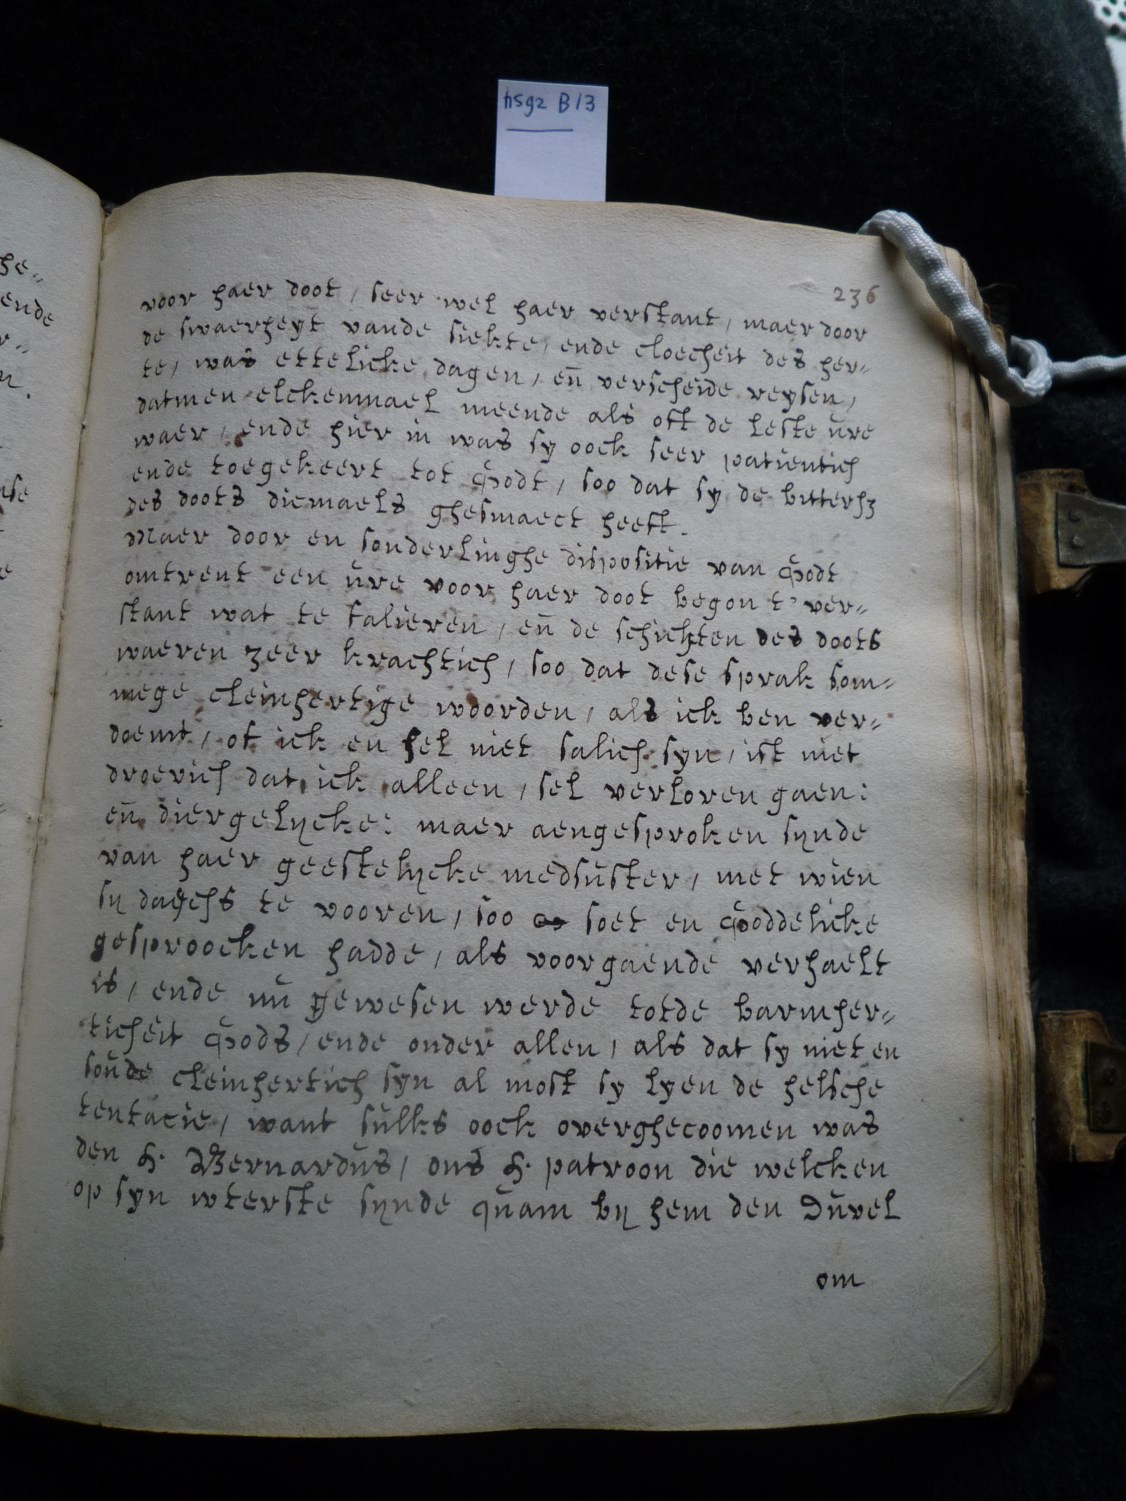 hs92 B13
236
voor haer doot, seer wel haer verstant, maer door
de swaerheyt vande siekte, ende cloecheit des her-
te, was ettelicke dagen, en̄ verscheide reysen,
datmen elckenmael meende als oft de leste ŭre
waer, ende hier in was sy oock seer patientich
ende toegekeert tot Godt, soo dat sy de bitterhz
des doots diemaels ghesmaect heeft.
Maer door en sonderlinghe dispositie van Godt
omtrent een ŭre voor haer doot begon t' ver-
stant wat te falieren, en̄ de schichten des doots
waeren zeer krachtich, soo dat dese sprak som-
mege cleinhertige woorden, als ick ben ver-
doemt, of ick en sel niet salich syn, ist niet
droevich dat ick alleen, sel verloren gaen:
en̄ diergelycke: maer aengesproken synde
van haer geestelycke medsŭster, met wien
sy daechs te vooren, soo soet en Goddelicke
gesproocken hadde, als voorgaende verhaelt
is, ende nŭ gewesen werde totde barmher-
ticheit Gods, ende onder allen, als dat sy niet en
soŭde cleinhertich syn al most sy lyen de helsche
tentatie, want sŭlks oock overghecoomen was
den H. Bernardŭs, ons H. patroon die welcken
op syn wterste synde qŭam by hem den Dŭvel
om
he-
ende